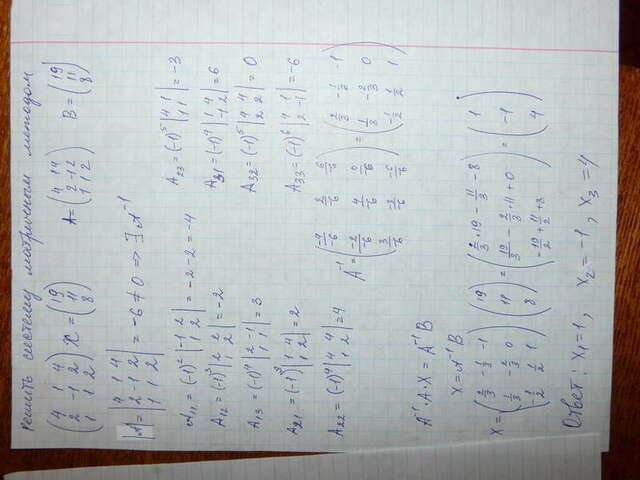 Решить систему матричным методом
(4 1 4; 2 -1 2; 1 1 2) X = (19; 11; 8)   A = (4 1 4; 2 -1 2; 1 1 2)   B = (19; 11; 8)
|A| = |4 1 4; 2 -1 2; 1 1 2| = -6 ≠ 0 => ∃ A⁻¹
A₁₁ = (-1)² |-1 2; 1 2| = -2-2 = -4
A₁₂ = (-1)³ |2 2; 1 2| = -2
A₁₃ = (-1)⁴ |2 -1; 1 1| = 3
A₂₁ = (-1)³ |1 4; 1 2| = 2
A₂₂ = (-1)⁴ |4 4; 1 2| = 4
A₂₃ = (-1)⁵ |4 1; 1 1| = -3
A₃₁ = (-1)⁴ |1 4; -1 2| = 6
A₃₂ = (-1)⁵ |4 4; 2 2| = 0
A₃₃ = (-1)⁶ |4 1; 2 -1| = -6
A⁻¹ = (-4/-6 2/-6 6/-6; -2/-6 4/-6 0/-6; 3/-6 -3/-6 -6/-6) = (2/3 -1/3 -1; 1/3 -2/3 0; -1/2 1/2 1)
A⁻¹·A·X = A⁻¹B
X = A⁻¹B
X = (2/3 -1/3 -1; 1/3 -2/3 0; -1/2 1/2 1) (19; 11; 8) = (2/3·19 - 11/3 - 8; 19/3 - 2/3·11 + 0; -19/2 + 11/2 + 8) = (1; -1; 4)
Ответ: x₁=1, x₂=-1, x₃=4